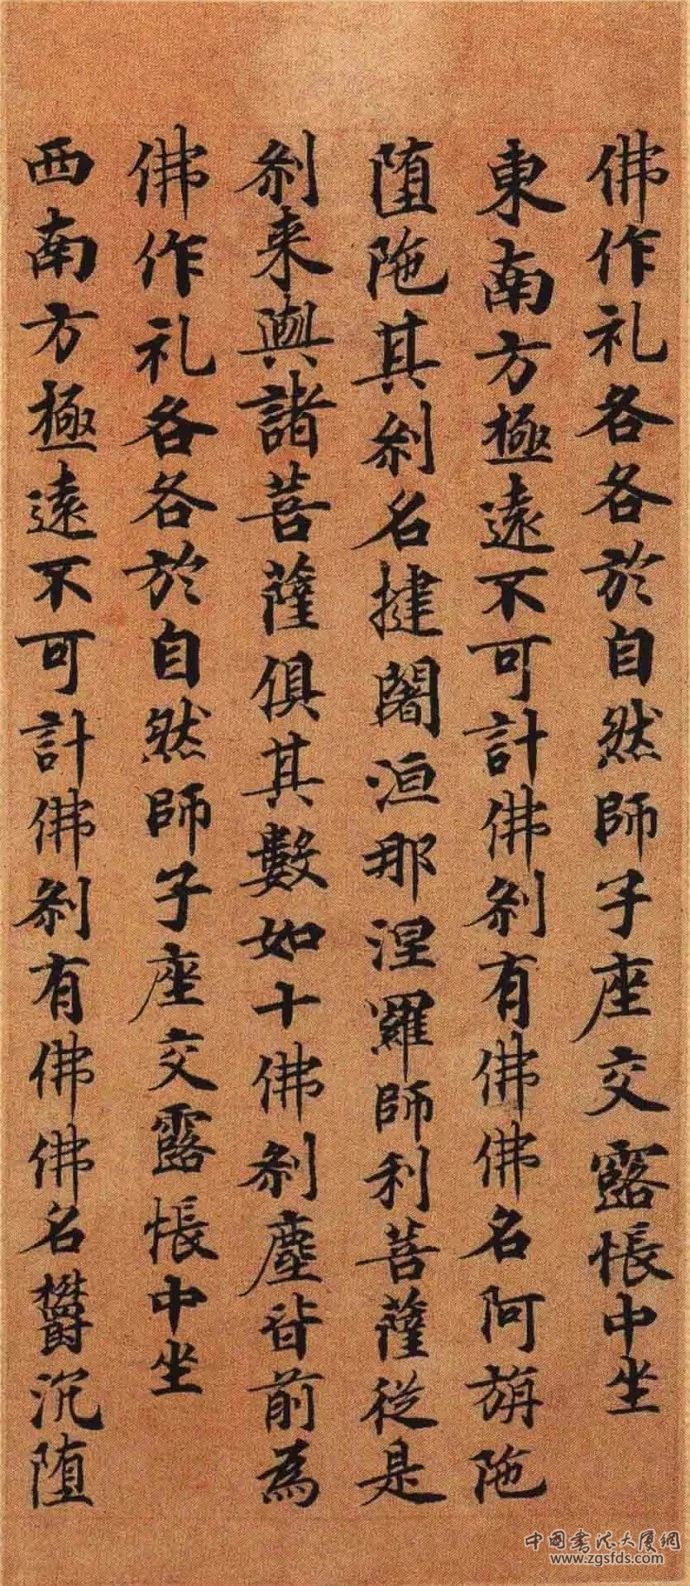 佛作礼各各於自然師子座交露帳中坐
東南方極遠不可計佛剎有佛佛名阿旃陁
墮陁其剎名揵闍洹那涅羅師利菩薩從是
剎来與諸菩薩俱其數如十佛剎塵皆前為
佛作礼各各於自然師子座交露帳中坐
西南方極遠不可計佛剎有佛佛名欝沉墮
中国书法大厦网
www.zgsfds.com